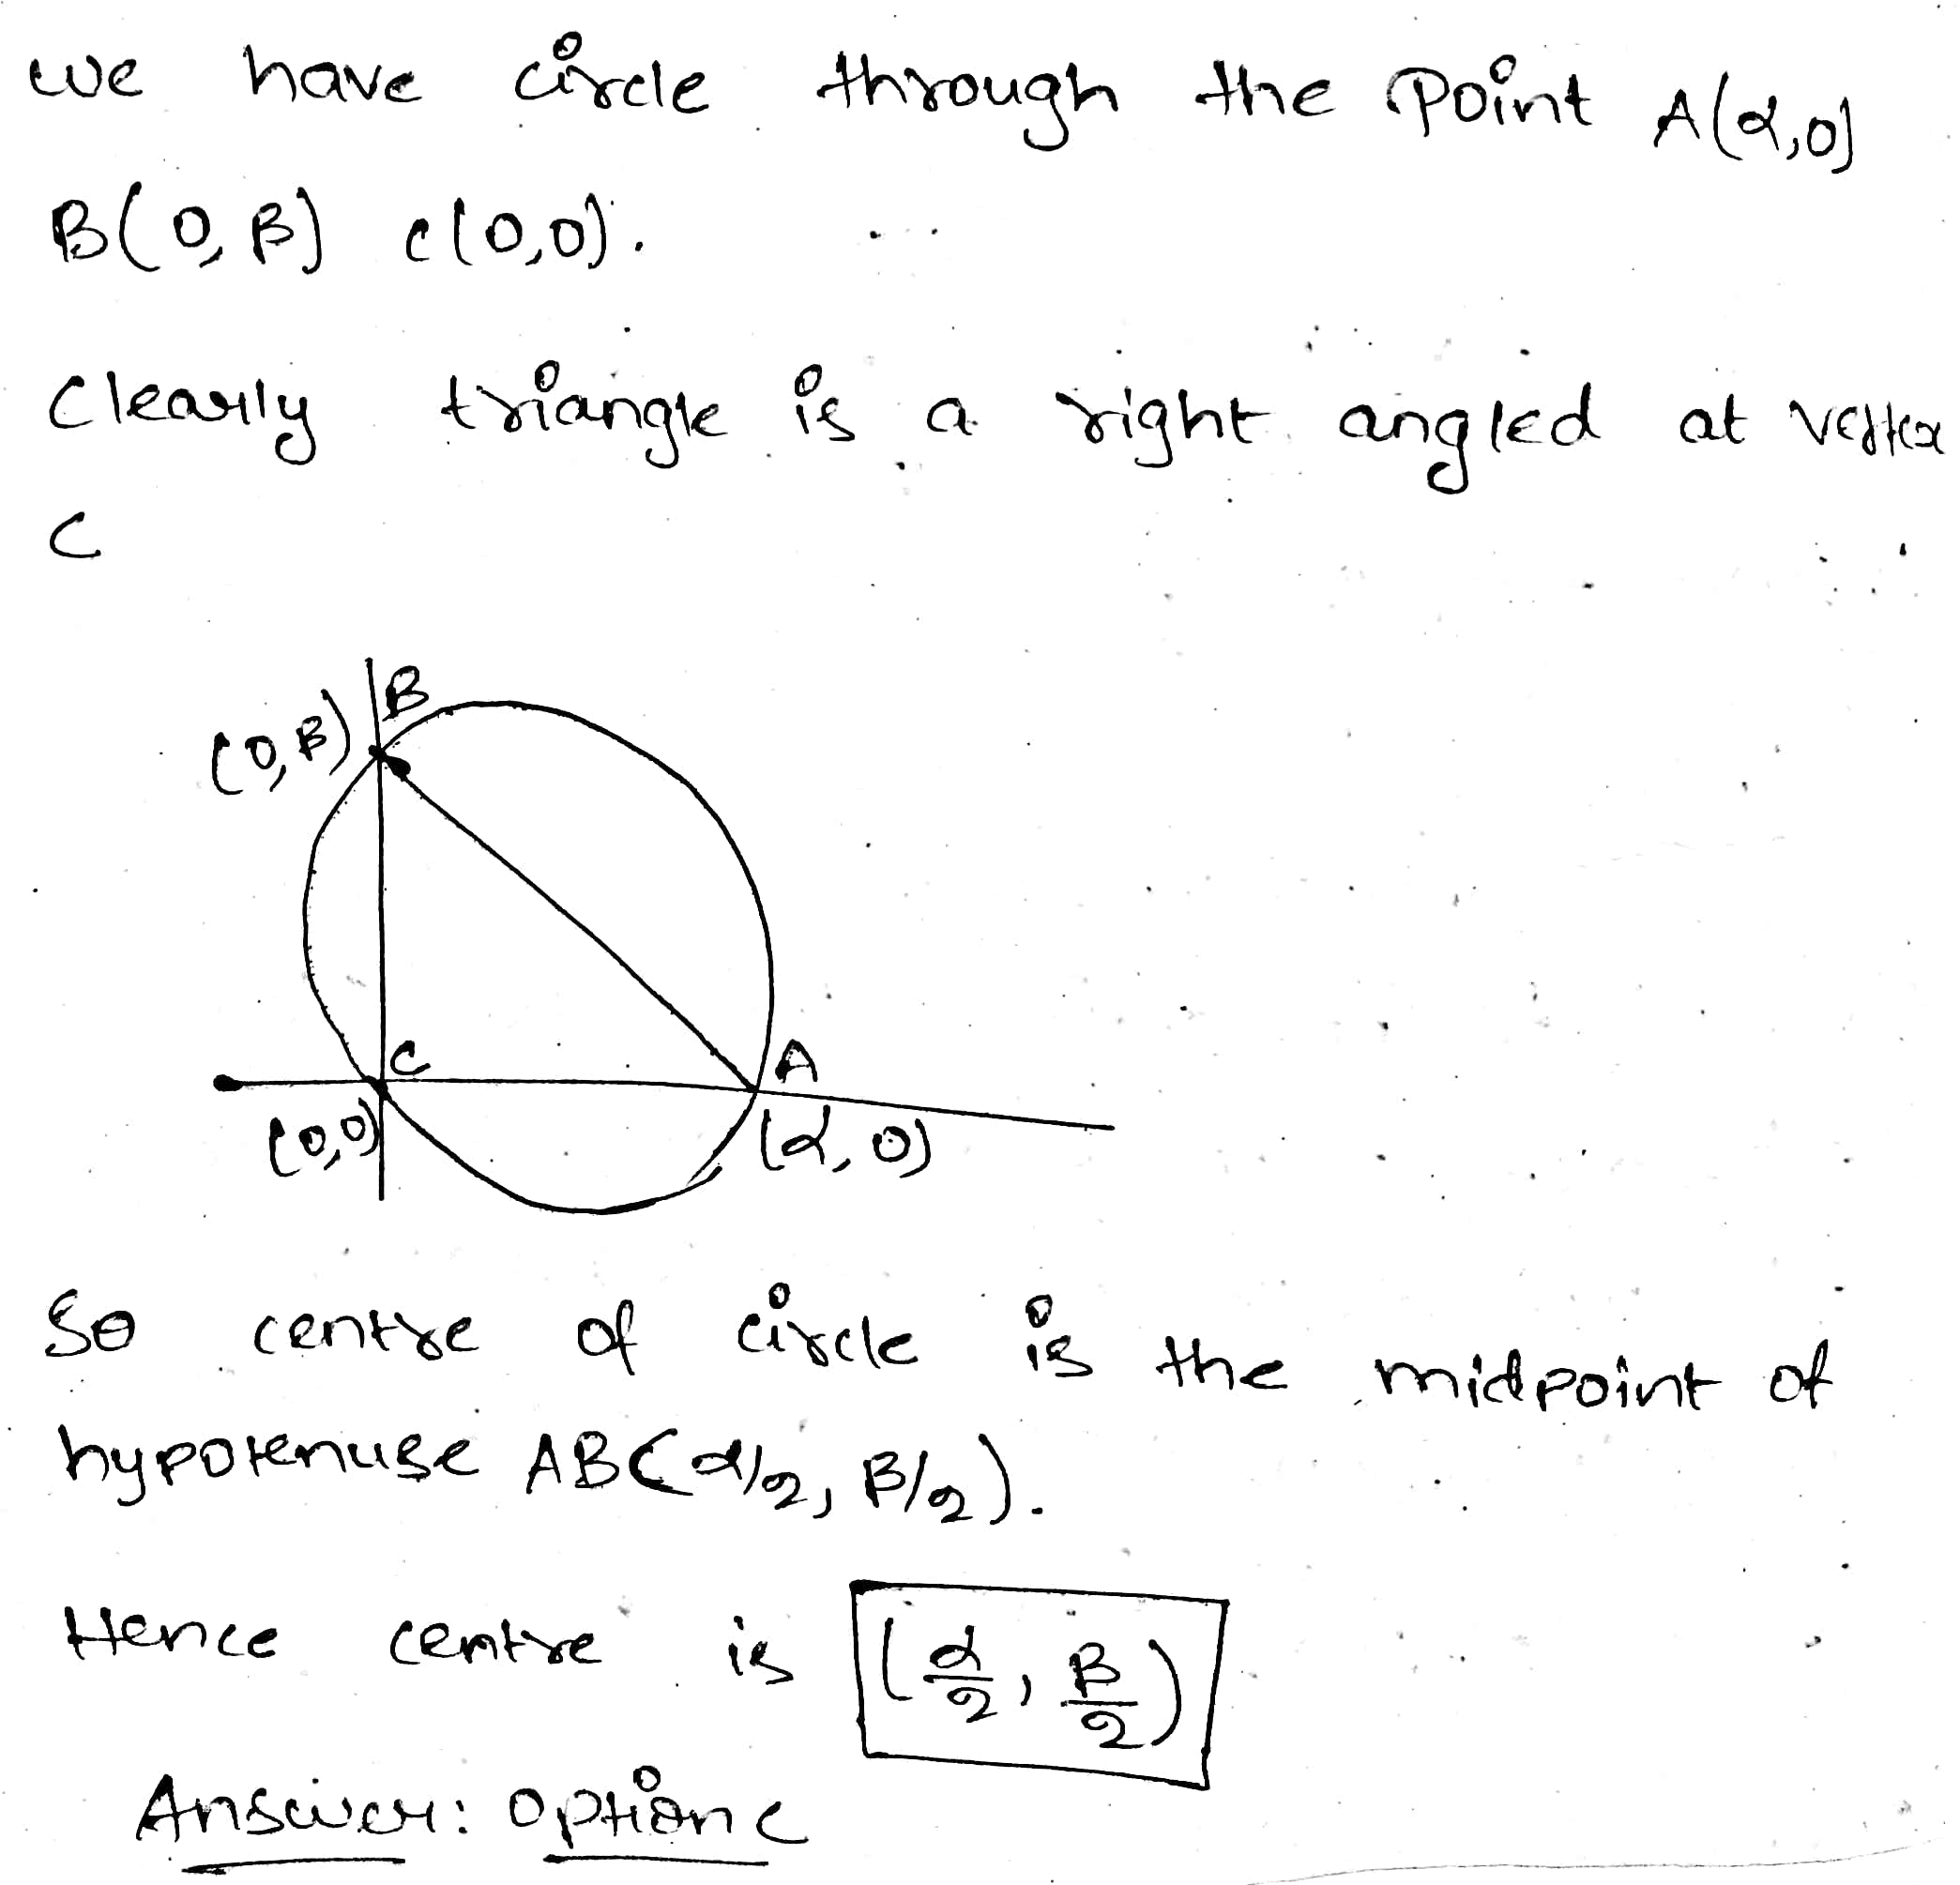 we have circle through the point A(α,0)
B(0,β) C(0,0).
Clearly triangle is a right angled at vertex
C
B
(0,β)
C
A
(0,0)
(α,0)
So centre of circle is the midpoint of
hypotenuse AB(α/2, β/2).
Hence centre is (α/2, β/2)
Answer: option c